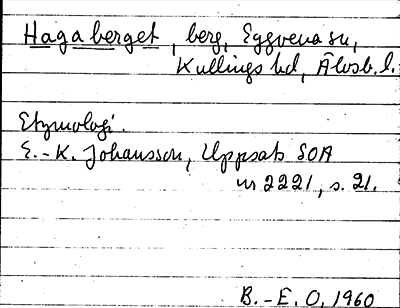 Hagaberget, berg, Eggvena sn,
Kullings hd, Älvsb. l.
Etymologi.
E.-K. Johansson, Uppsats SOA
nr 2221, s. 21.
B.-E. O, 1960